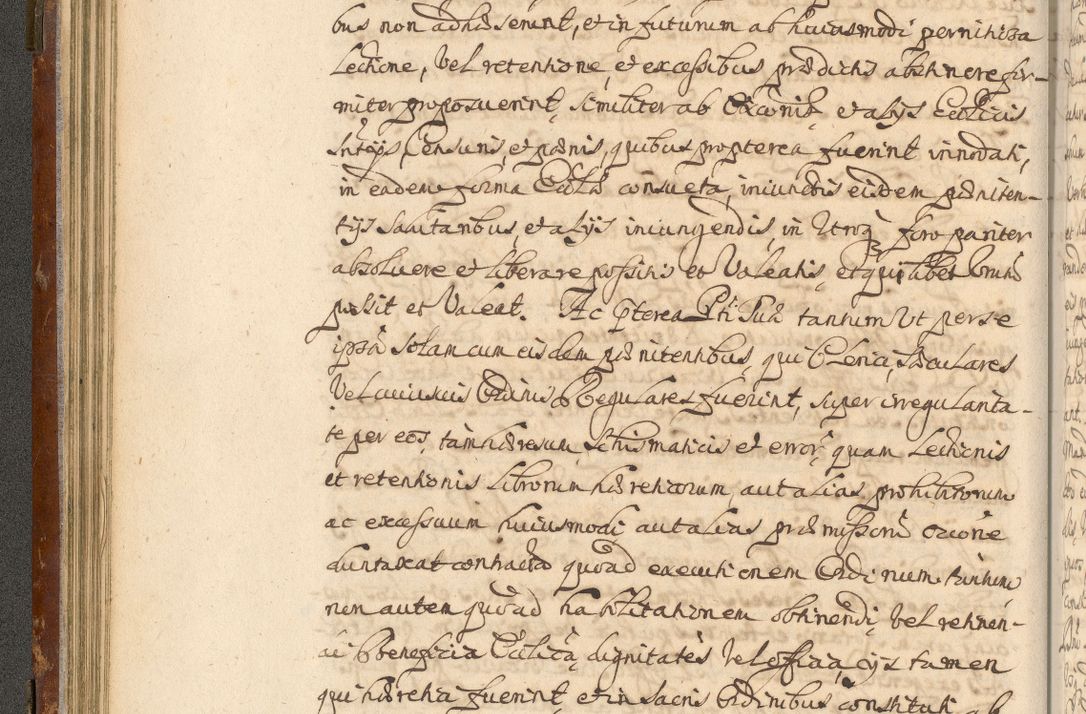 bus non adhæserint, et in futurum ab huiusmodi pernitiosa
Lectione, vel retentione, et excessibus prædictis abstinere fir-
miter proposuerint, similiter ab Excõnis, et alijs Ecclicis
Sntijs, Censuris, et pænis, quibus propterea fuerint innodati,
in eadem forma Ecclæ consueta, iniunctis eisdem pæniten-
tijs salutaribus, et alijs iniungendis, in Utroq foro pariter
absoluere et liberare possitis et Valeatis, et quilibet Vrum
possit et Valeat. Ac pterea Ptti Sua tantum Ut per se
ipsã solam cum eisdem pænitentibus, qui Clerici, sæculares
Vel cuiusuis Ordinis Regulares fuerint, super irregularita-
te per eos, tam hæresum, schismaticis et errorũ quam Lectionis
et retentionis Librorum hæreticorum, aut alias prohibitorum
ac excessuum huiusmodi aut alias præmissorũ occõne
duntaxat contracta quoad executionem Ordinum tantum
non autem quoad habilitationem obtinendi, vel retinen-
di Beneficia Ecclicã, dignitates Vel officia, ijs tamen
qui hæretici fuerint, et in sacris Ordinibus constituti ab